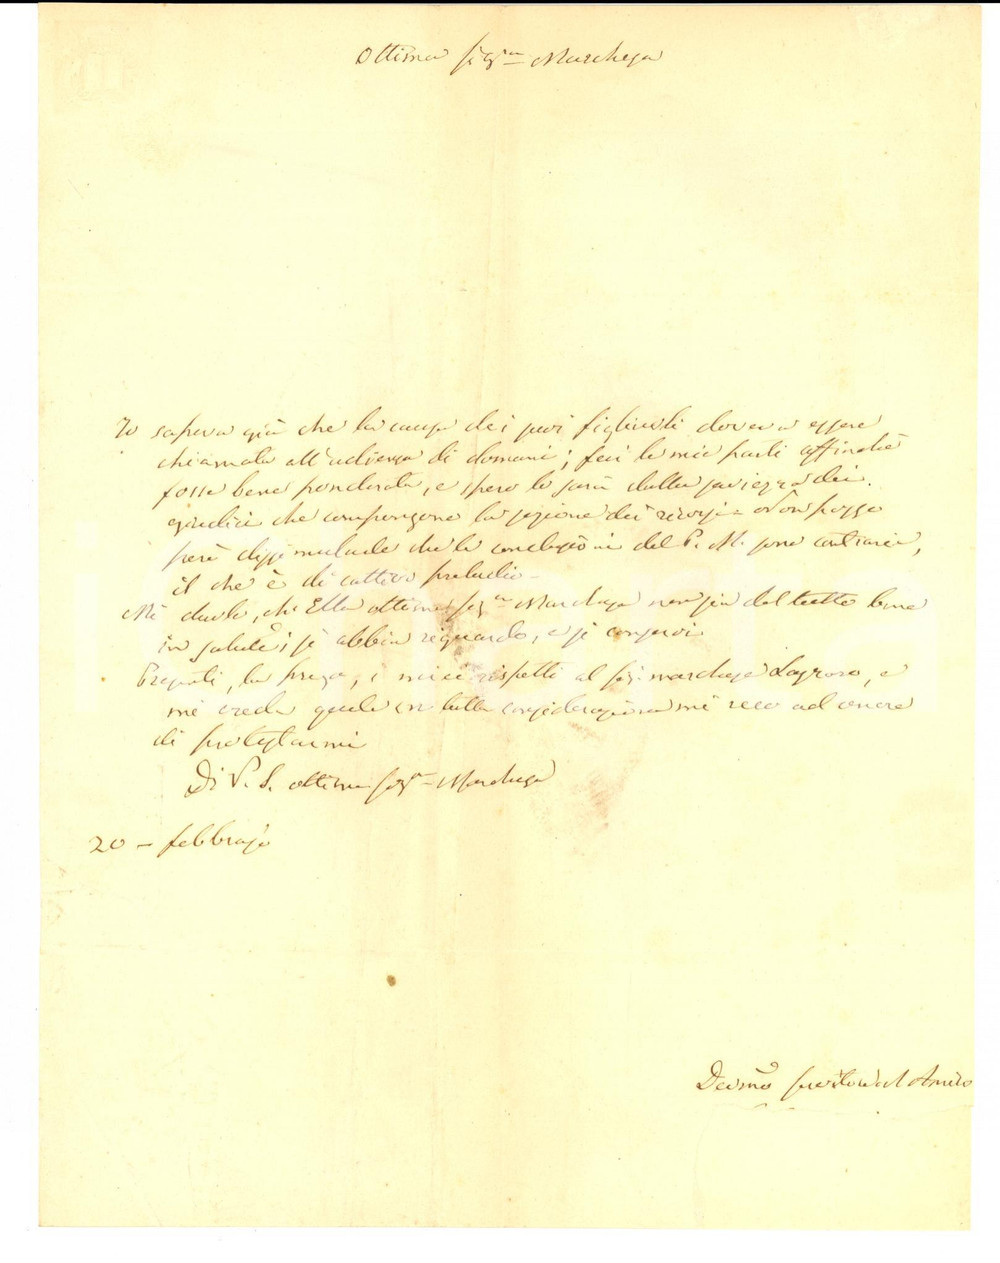 Ottima Sig.ra Marchesa
Io sapeva già che la causa dei suoi figliuoli doveva essere
chiamata all'udienza di domani; feci le mie parti affinchè
fosse bene ponderata, e spero lo sarà dalla saviezza dei
giudici che compongono la sezione dei ricorsi. Non posso
però dissimularle che le conclusioni del P. M. sono contrarie,
il che è di cattivo preludio.
Mi duole, che Ella ottima Sig.ra Marchesa non sia del tutto bene
in salute; si abbia riguardo, e si conservi.
Presenti, la prego, i miei rispetti al Sig. marchese e
mi creda quale con tutta considerazione mi reco ad onore
di protestarmi
Di V. S. ottima Sig.ra Marchesa
20 - febbrajo
Devmo